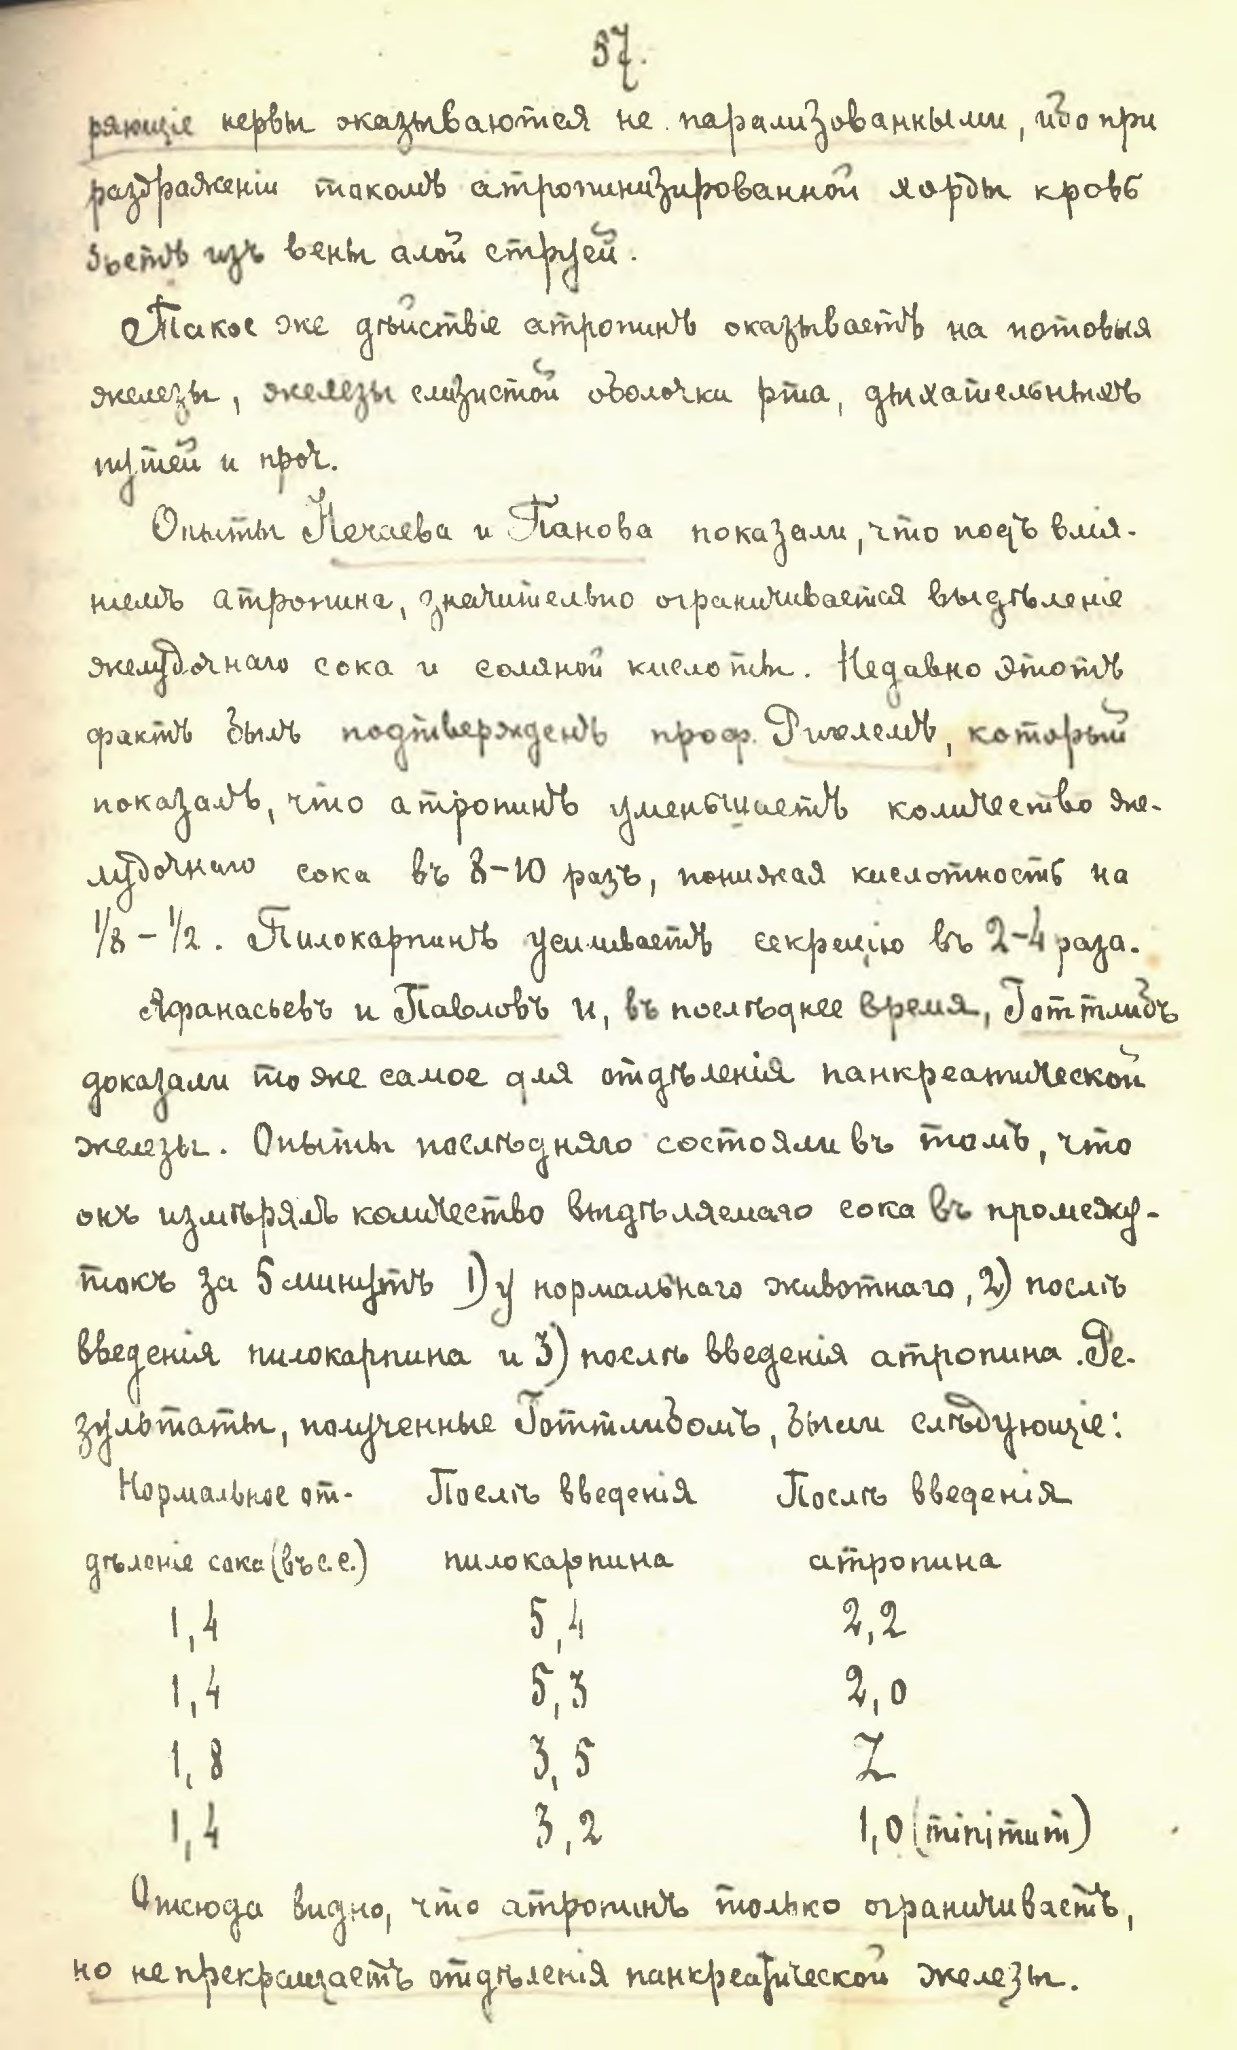 57.
ряющіе нервы оказываются не парализованными, ибо при
раздраженіи такомъ атропинизированной хорды кровь
бьетъ изъ вены алой струей.
Такое же дѣйствіе атропинъ оказываетъ на потовыя
железы, железы слизистой оболочки рта, дыхательныхъ
путей и проч.
Опыты Нечаева и Панова показали, что подъ влія-
ніемъ атропина, значительно ограничивается выдѣленіе
желудочнаго сока и соляной кислоты. Недавно этотъ
фактъ былъ подтвержденъ проф. Ригелемъ, который
показалъ, что атропинъ уменьшаетъ количество же-
лудочнаго сока въ 8-10 разъ, понижая кислотность на
1/8 - 1/2. Пилокарпинъ усиливаетъ секрецію въ 2-4 раза.
Афанасьевъ и Павловъ и, въ послѣднее время, Готтлибъ
доказали то же самое для отдѣленія панкреатической
железы. Опыты послѣдняго состояли въ томъ, что
онъ измѣрялъ количество выдѣляемаго сока въ промежу-
токъ за 5 минутъ 1) у нормальнаго животнаго, 2) послѣ
введенія пилокарпина и 3) послѣ введенія атропина. Ре-
зультаты, полученные Готтлибомъ, были слѣдующіе:
Нормальное от- Послѣ введенія Послѣ введенія
дѣленіе сока (въ с.с.) пилокарпина атропина
1,4 5,4 2,2
1,4 5,3 2,0
1,8 3,5 2
1,4 3,2 1,0 (minimum)
Отсюда видно, что атропинъ только ограничиваетъ,
но не прекращаетъ отдѣленія панкреатической железы.